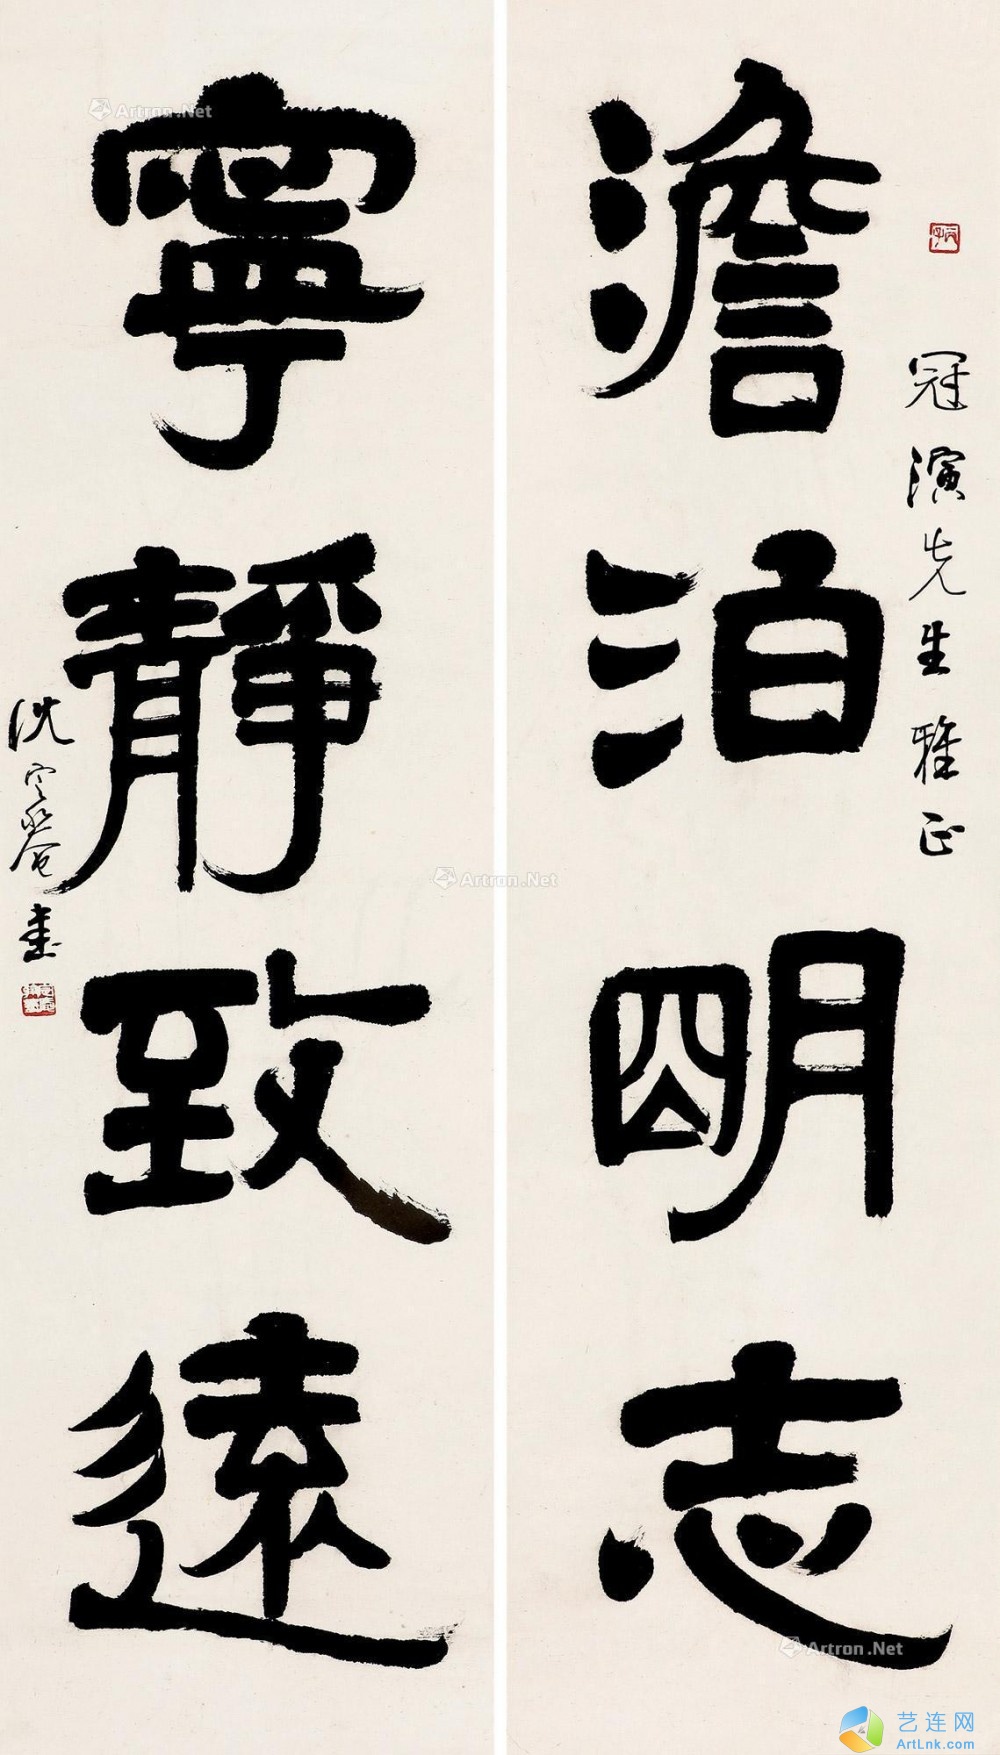 澹泊明志
冠濱先生雅正
寧靜致遠
沈定庵書
Artron.Net
Artron.Net
Artron.Net
艺连网
ArtLnk.com